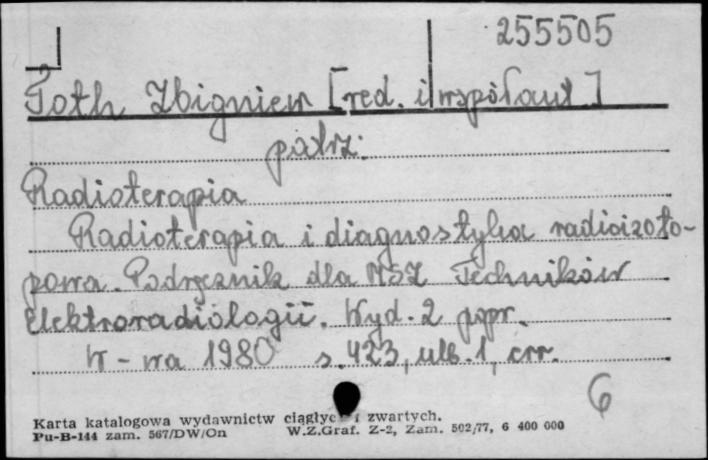 255505
Toth Zbigniew [red. i współaut.]
patrz:
Radioterapia
Radioterapia i diagnostyka radioizoto-
powa. Podręcznik dla MSZ Techników
Elektroradiologii. Wyd. 2 popr.
W-wa 1980 s. 423, ulb. 1, err.
6
Karta katalogowa wydawnictw ciągłyc i zwartych.
Pu-B-144 zam. 567/DW/On W.Z.Graf. Z-2, Zam. 502/77, 6 400 000